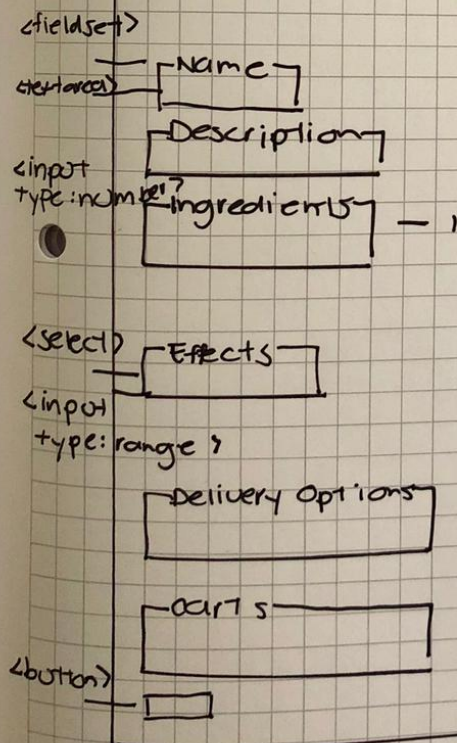 <fieldset>
Name
<textarea>
Description
<input
type:number>
Ingredients
<select>
Effects
<input
type:range >
Delivery Options
<button>